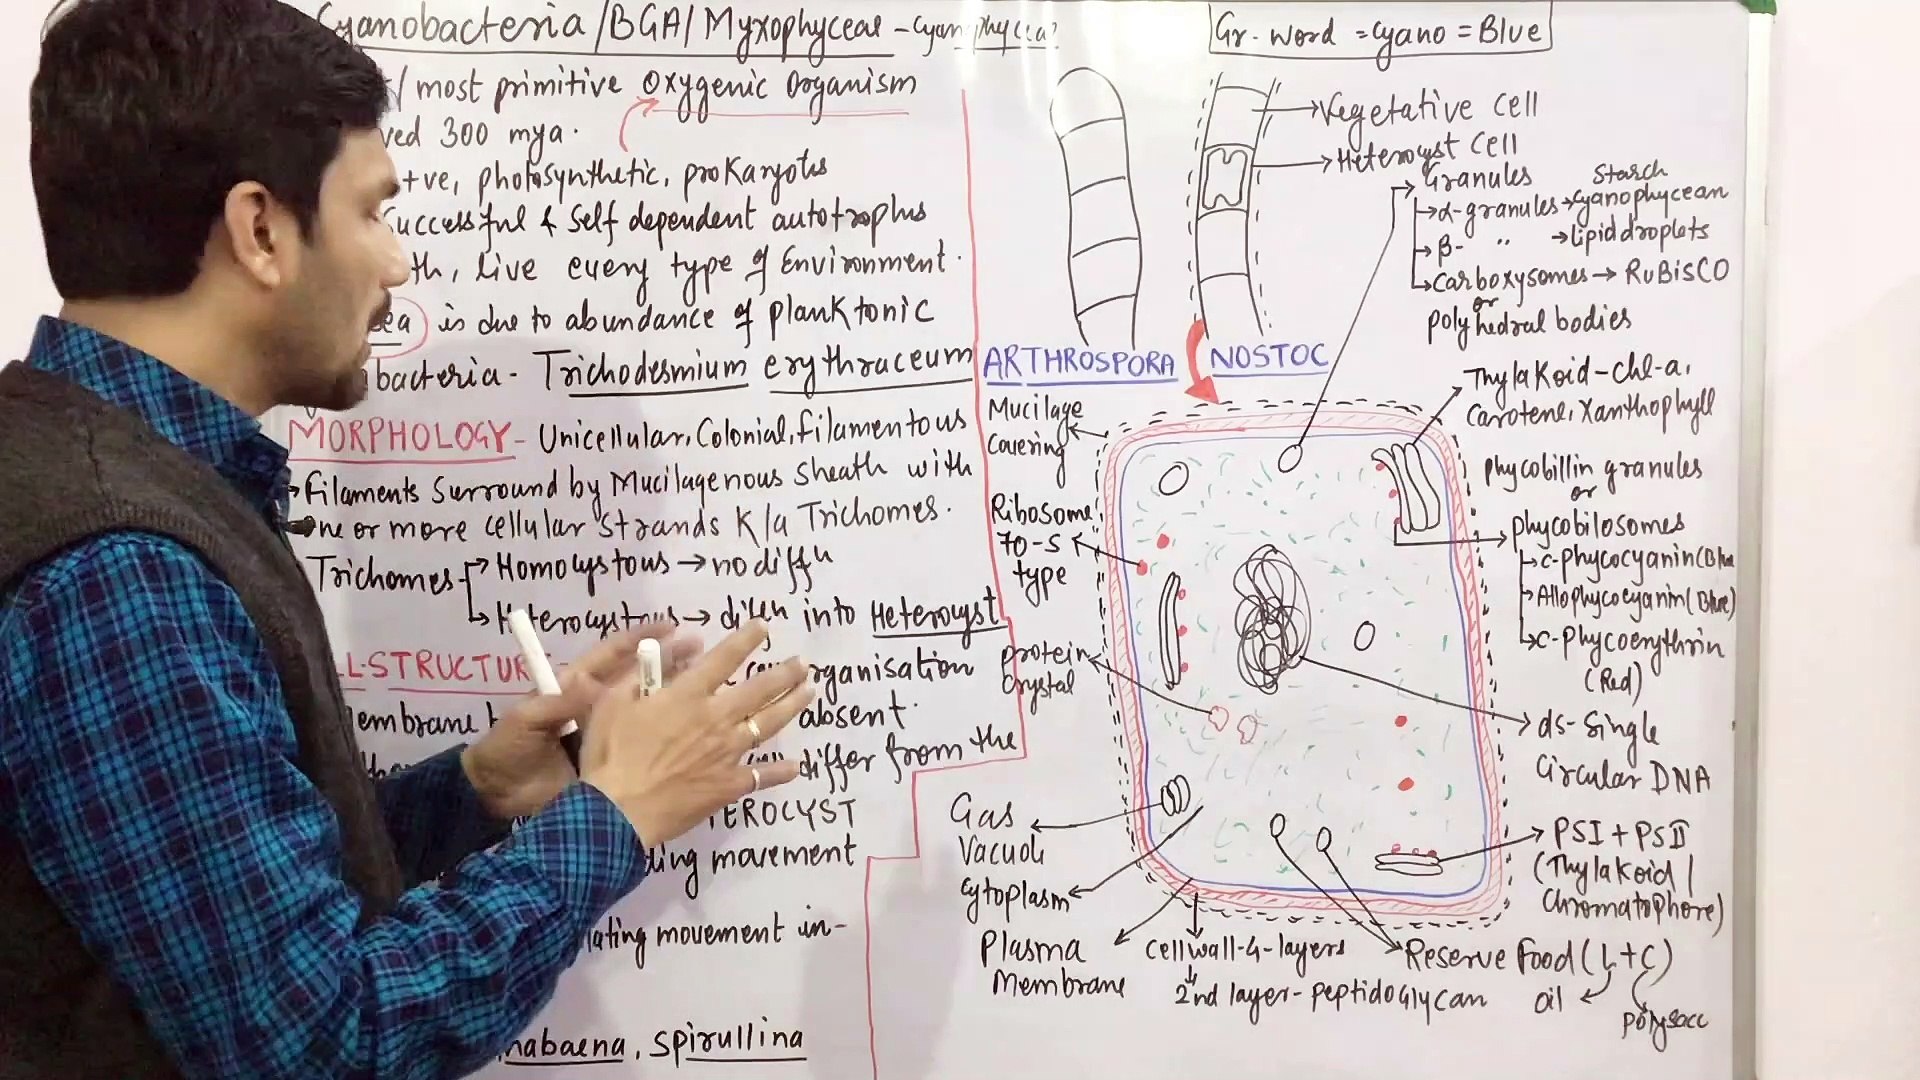 Cyanobacteria/BGA/Myxophyceae-Cyanophyceae
most primitive Oxygenic Organism
ved 300 mya.
+ve, photosynthetic, prokaryotes
Successful & Self dependent autotrophs
th, live every type of Environment.
ea is due to abundance of planktonic
bacteria- Trichodesmium erythraceum
MORPHOLOGY- Unicellular, Colonial, filamentous
→Filaments Surround by Mucilagenous Sheath with
one or more cellular strands K/a Trichomes.
Trichomes
→Homocystous→no diffn
→Heterocystous→diffn into Heterocyst
LL-STRUCTURE-
organisation
embrane
absent.
differ from the
EROCYST
ding movement
lating movement in-
nabaena, Spirullina
Gr. word =Cyano=Blue
→Vegetative cell
→Heterocyst cell
Granules
→α-granules→Cyanophycean Starch
→β- " →lipid droplets
→Carboxysomes→RuBisCO
or
polyhedral bodies
ARTHROSPORA
NOSTOC
Mucilage
Covering
Ribosome
70-S
type
protein
Crystal
Gas
Vacuole
Cytoplasm
Plasma
Membrane
Cellwall-4-layers
2nd layer-peptidoglycan
Thylakoid-chl-a,
Carotene, Xanthophyll
phycobillin granules
or
phycobilosomes
→C-phycocyanin(Blue
→Allophycocyanin(Blue)
→C-phycoerythrin
(Red)
ds-Single
Circular DNA
PSI+PSII
(Thylakoid/
Chromatophore)
Reserve Food(L+C)
oil
polysacc